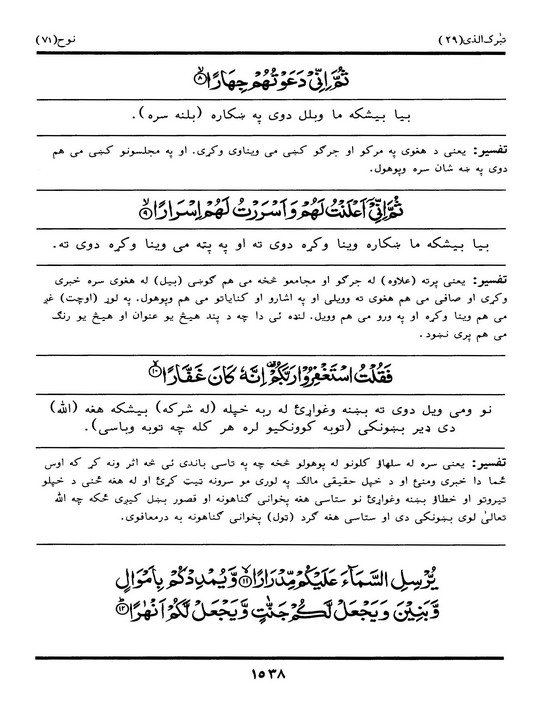 تبٰرک الذی (۲۹) نوح (۷۱)
ثُمَّ اِنِّیْ دَعَوْتُهُمْ جِهَارًا ۙ﴿۸﴾
بیا بیشکه ما وبلل دوی په ښکاره (بلنه سره).
تفسیر: یعنی د هغوی په مرکو او جرگو کښی می ویناوی وکړی. او په مجلسونو کښی می هم
دوی په ښه شان سره وپوهول.
ثُمَّ اِنِّیْۤ اَعْلَنْتُ لَهُمْ وَ اَسْرَرْتُ لَهُمْ اِسْرَارًا ۙ﴿۹﴾
بیا بیشکه ما ښکاره وینا وکړه دوی ته او په پته می وینا وکړه دوی ته.
تفسیر: یعنی پرته (علاوه) له جرگو او مجامعو څخه می هم گوښی (بیل) له هغوی سره خبری
وکړی او صافی می هم هغوی ته وویلی او په اشارو او کنایاتو می هم وپوهول. په لوړ (اوچت) غږ
می هم وینا وکړه او په ورو می هم وویل. لنډه ئی دا چه د پند هیڅ یو عنوان او هیڅ یو رنگ
می هم پری نښود.
فَقُلْتُ اسْتَغْفِرُوْا رَبَّكُمْ ؕ اِنَّهٗ كَانَ غَفَّارًا ۙ﴿۱۰﴾
نو ومی ویل دوی ته بښنه وغواړئ له ربه خپله (له شرکه) بیشکه هغه (الله)
دی ډیر بښونکی (توبه کوونکیو لره هر کله چه توبه وباسی).
تفسیر: یعنی سره له سلهاؤ کلونو له پوهولو څخه چه په تاسی باندی ئی څه اثر ونه کړ که اوس
ځما دا خبری ومنئ او د خپل حقیقی مالک په لوری مو سرونه تیت کړئ او له هغه ځنی د خپلو
تیروتو او خطاؤ بښنه وغواړئ نو ستاسی هغه پخوانی گناهونه او قصور بښل کیږی ځکه چه الله
تعالیٰ لوی بښونکی دی او ستاسی هغه گرد (ټول) پخوانی گناهونه به درمعافوی.
یُّرْسِلِ السَّمَآءَ عَلَیْكُمْ مِّدْرَارًا ۙ﴿۱۱﴾ وَّ یُمْدِدْكُمْ بِاَمْوَالٍ
وَّ بَنِیْنَ وَ یَجْعَلْ لَّكُمْ جَنّٰتٍ وَّ یَجْعَلْ لَّكُمْ اَنْهٰرًا ؕ﴿۱۲﴾
۱۵۳۸